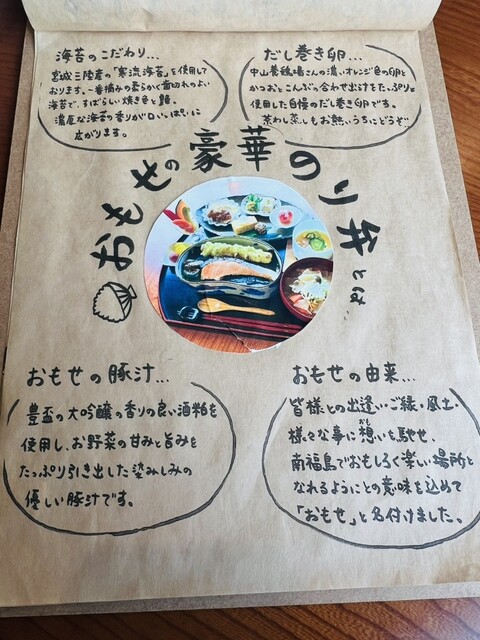 海苔のこだわり...
宮城三陸産の「寒流海苔」を使用して
おります。一番摘みの柔らかく歯切れのよい
海苔で、すばらしい焼き色と艶。
濃厚な海苔の香りが口いっぱいに
広がります。
だし巻き卵...
中山養鶏場さんの濃いオレンジ色の卵と
かつおとこんぶの合わせ出汁をたっぷりと
使用した自慢のだし巻き卵です。
茶わん蒸しもお熱いうちにどうぞ
おもせの豪華のり弁とは...
おもせの豚汁...
豊盃の大吟醸の香りの良い酒粕を
使用し、お野菜の甘みと旨みを
たっぷり引き出した染みしみの
優しい豚汁です。
おもせの由来...
皆様との出逢い・ご縁・風土・
様々な事に想いを馳せ、
おも
南福島でおもしろく楽しい場所と
なれるようにとの意味を込めて
「おもせ」と名付けました。